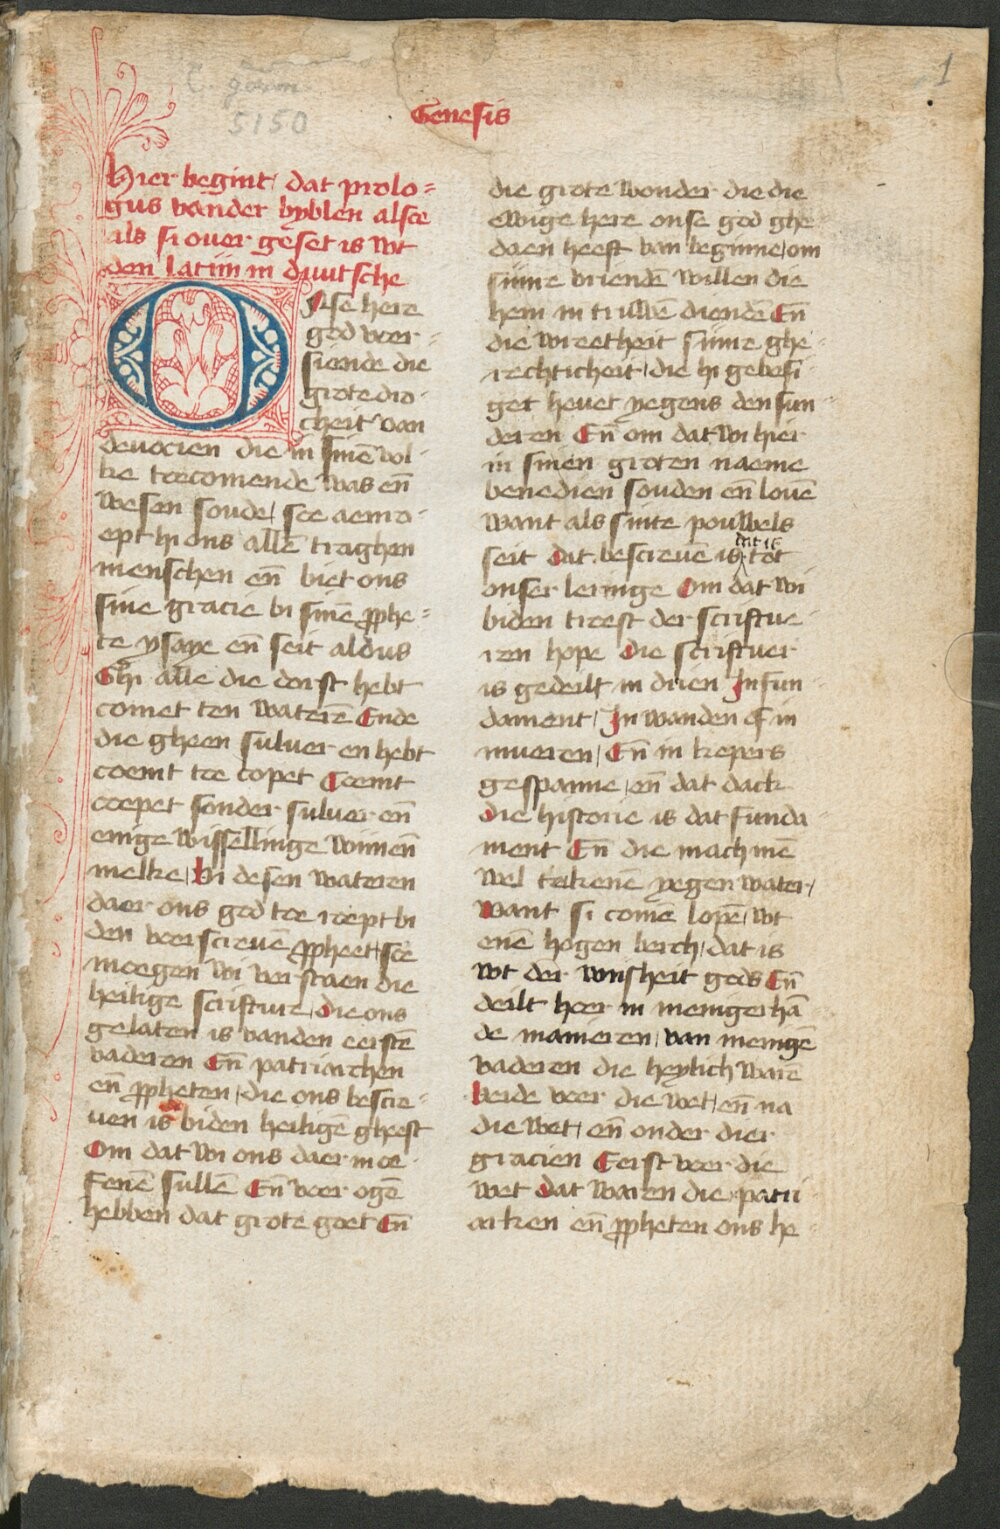 1
C. germ.
5150
Genesis
Hier begint dat prolo=
gus vander byblen alsoe
als si over geset is wt
den latiin in duutsche
Onse here
god voer-
siende die
grote dro-
cheit van
devocien die in sinē vol-
ke toecomende was eñ
wesen soude, soe aemo-
ept hi ons allē traghen
menschen eñ biet ons
sine gracie bi sinē prophe=
te ysaye eñ seit aldus
Ghi alle die dorst hebt
comet ten waterē Ende
die gheen suluer en hebt
coemt toe copet Coemt
coepet sonder suluer eñ
enige wissellinge winnen
melke, Bi desen wateren
daer ons god toe roept bi
den voerscreuē propheet, soe
moegen wi verstaen die
heilige scrifture, die ons
gelaten is vanden eerstē
vaderen Eñ patriarchen
eñ propheten, die ons bescre-
uen is biden heiligē gheest
Om dat wi ons daer in oe-
fenē sullē Eñ voer ogē
hebben dat grote goet Eñ
die grote wonder die die
ewige here onse god ghe-
daen heeft van beginne, om
siinre vriendē willen die
hem in truwē diendē Eñ
die wreetheit siinre ghe-
rechticheit, die hi gebesi-
get heuet yegens den sun-
deren Eñ om dat wi hier
in sinen groten naeme
benedien souden eñ louē
want als sinte pouwels
seit dat bescreuē is, dat is tot
onser leringe Om dat wi
biden troest der scriftue-
ren hope Die scriftuer
is gedeilt in drien In fun-
dament, In wanden of in
mueren, Eñ in kepers
gespanne, eñ dat dack
Die historie is dat funda-
ment Eñ die mach mē
wel tekenē yegen water,
Want si comē lopē, wt
enē hogen berch, dat is
wt der wijsheit gods Eñ
deilt heer in menigerhā
de manieren, van menigē
vaderen die heylich warē
beide voer die wet, eñ na
die wet, eñ onder dier
gracien Eerst voer die
wet dat waren die patri
arken eñ propheten ons he-